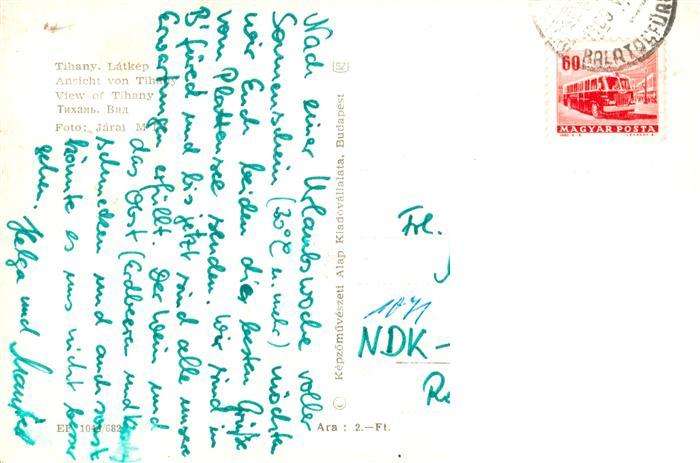 Tihany. Látkép
Ansicht von Tihany
View of Tihany
Тихань. Вид
Foto: Járai M
Nach einer Urlaubswoche voller
Sonnenschein (30°C u. mehr) möchten
wir Euch beiden die besten Grüße
vom Plattensee senden. Wir sind in
B'füred und bis jetzt sind alle unsere
Erwartungen erfüllt. Der Wein und
das Obst (Erdbeeren und
schmecken und auch sonst
könnte es uns nicht besser
gehen. Helga und Manfred
EP
Ara: 2.—Ft.
© Képzőművészeti Alap Kiadóvállalata, Budapest
SZ
BALATONFÜRED
60
MAGYAR POSTA
Frl.
NDK –